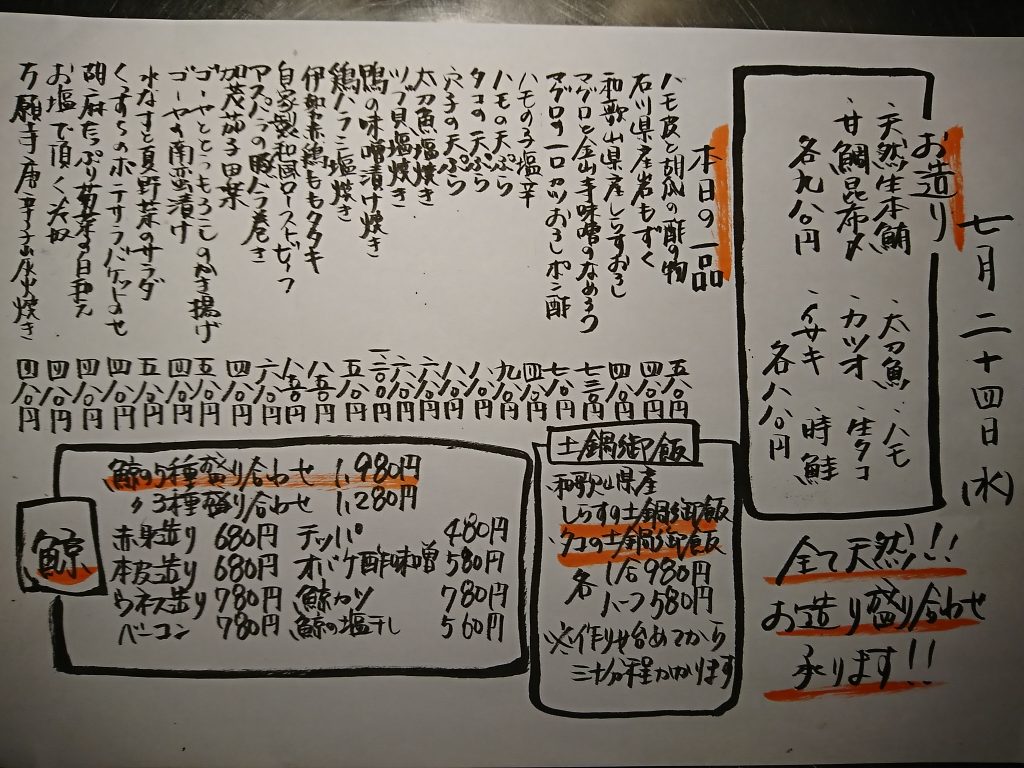 七月二十四日(水)
お造り
・天然生本鮪 ・太刀魚 ・ハモ
・甘鯛昆布〆 ・カツオ ・生タコ
各九八〇円 ・イサキ ・時鮭
各八八〇円
全て天然!!!
お造り盛り合わせ
承ります!!
本日の一品
ハモ皮と胡瓜の酢の物 五八〇円
石川県産岩もずく 四八〇円
和歌山県産しらすおろし 四八〇円
マグロと金山寺味噌のなめろう 七三〇円
マグロの一口カツおろしポン酢 七八〇円
ハモの子塩辛 四八〇円
ハモの天ぷら 九八〇円
タコの天ぷら 八八〇円
穴子の天ぷら 八八〇円
太刀魚塩焼き 六八〇円
ツブ貝塩焼き 六八〇円
鴨の味噌漬け焼き 一二〇〇円
鶏ハラミ塩焼き 五八〇円
伊勢赤鶏ももタタキ 八五〇円
自家製和風ローストビーフ 八五〇円
アスパラの豚バラ巻き 六八〇円
加茂茄子田楽 四八〇円
ゴーヤととうもろこしのかき揚げ 五八〇円
ゴーヤの南蛮漬け 四八〇円
水なすと夏野菜のサラダ 五八〇円
ポテサラバケットのせ 四八〇円
胡麻たっぷり菊菜の白和え 四八〇円
お塩で頂く冷奴 四八〇円
万願寺唐辛子山椒焼き 四八〇円
土鍋御飯
・和歌山県産
しらすの土鍋御飯
・タコの土鍋御飯
各 1合980円
ハーフ580円
※作り始めてから
三十分程かかります
鯨
鯨の5種盛り合わせ 1,980円
〃3種盛り合わせ 1,280円
赤身造り 680円 テッパ 480円
本皮造り 680円 オバケ酢味噌 580円
ウネス造り 780円 鯨カツ 780円
ベーコン 780円 鯨の塩干し 560円